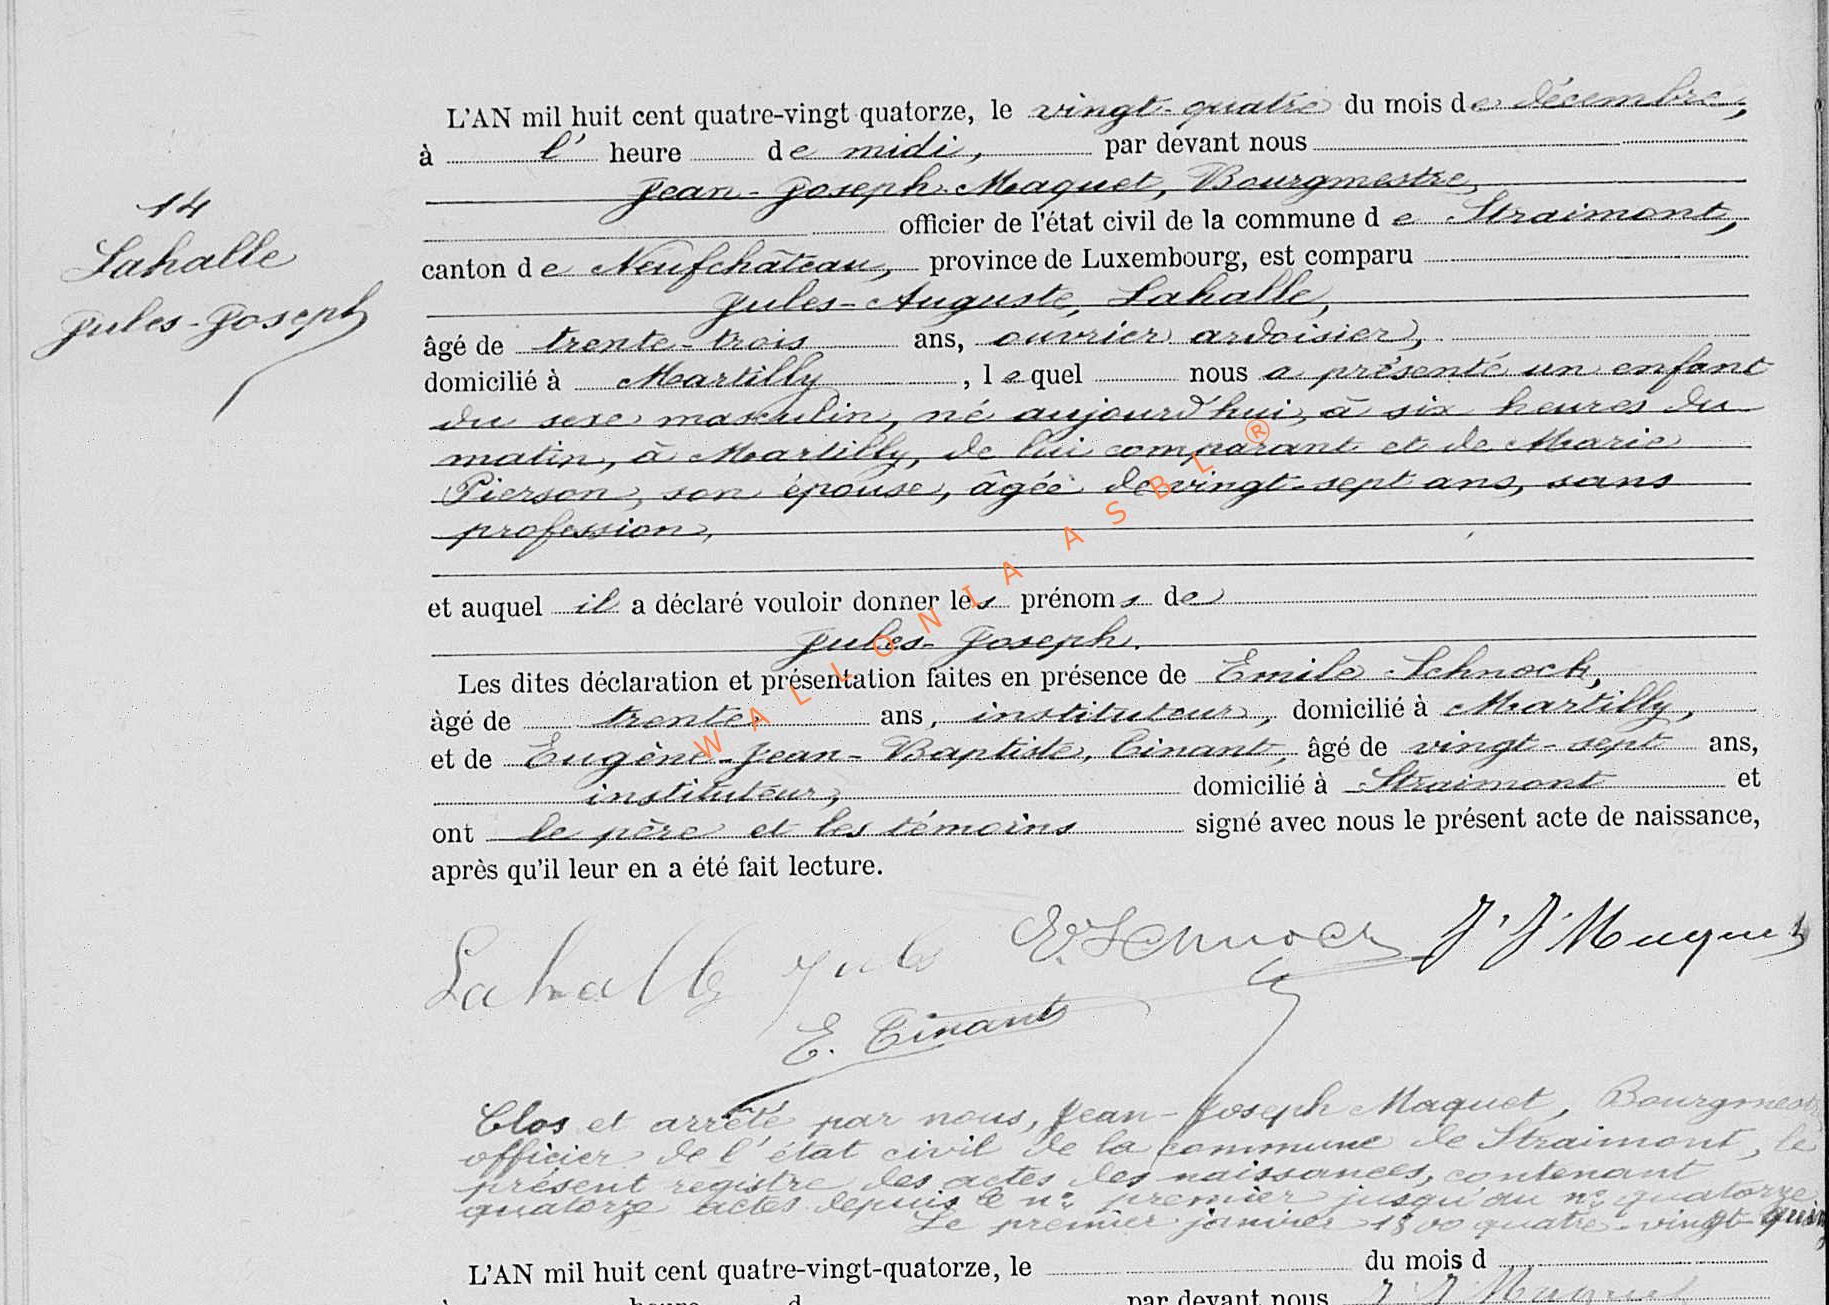 L'AN mil huit cent quatre-vingt quatorze, le vingt-quatre du mois de décembre,
à l' heure de midi, par devant nous
Jean-Joseph Maquet, Bourgmestre,
officier de l'état civil de la commune de Straimont,
14
Lahalle
Jules-Joseph
canton de Neufchâteau, province de Luxembourg, est comparu
Jules-Auguste, Lahalle,
âgé de trente-trois ans, ouvrier ardoisier,
domicilié à Martilly, lequel nous a présenté un enfant
du sexe masculin, né aujourd'hui, à six heures du
matin, à Martilly, de lui comparant et de Marie
Pierson, son épouse, âgée de vingt-sept ans, sans
profession,
et auquel il a déclaré vouloir donner les prénoms de
Jules-Joseph.
Les dites déclaration et présentation faites en présence de Emile Schnock,
âgé de trente ans, instituteur, domicilié à Martilly,
et de Eugène-Jean-Baptiste, Tinant, âgé de vingt-sept ans,
instituteur, domicilié à Straimont et
ont le père et les témoins signé avec nous le présent acte de naissance,
après qu'il leur en a été fait lecture.
Lahalle Jules E. Schnock J J Maquet
E. Tinant
Clos et arrêté par nous, Jean-Joseph Maquet, Bourgmestre
officier de l'état civil de la commune de Straimont, le
présent registre des actes des naissances, contenant
quatorze actes depuis le n° premier jusqu'au n° quatorze
Le premier janvier 1800 quatre-vingt-quin
L'AN mil huit cent quatre-vingt-quatorze, le du mois d
heure d par devant nous J J Maquet
WALLONIA ASBL ®